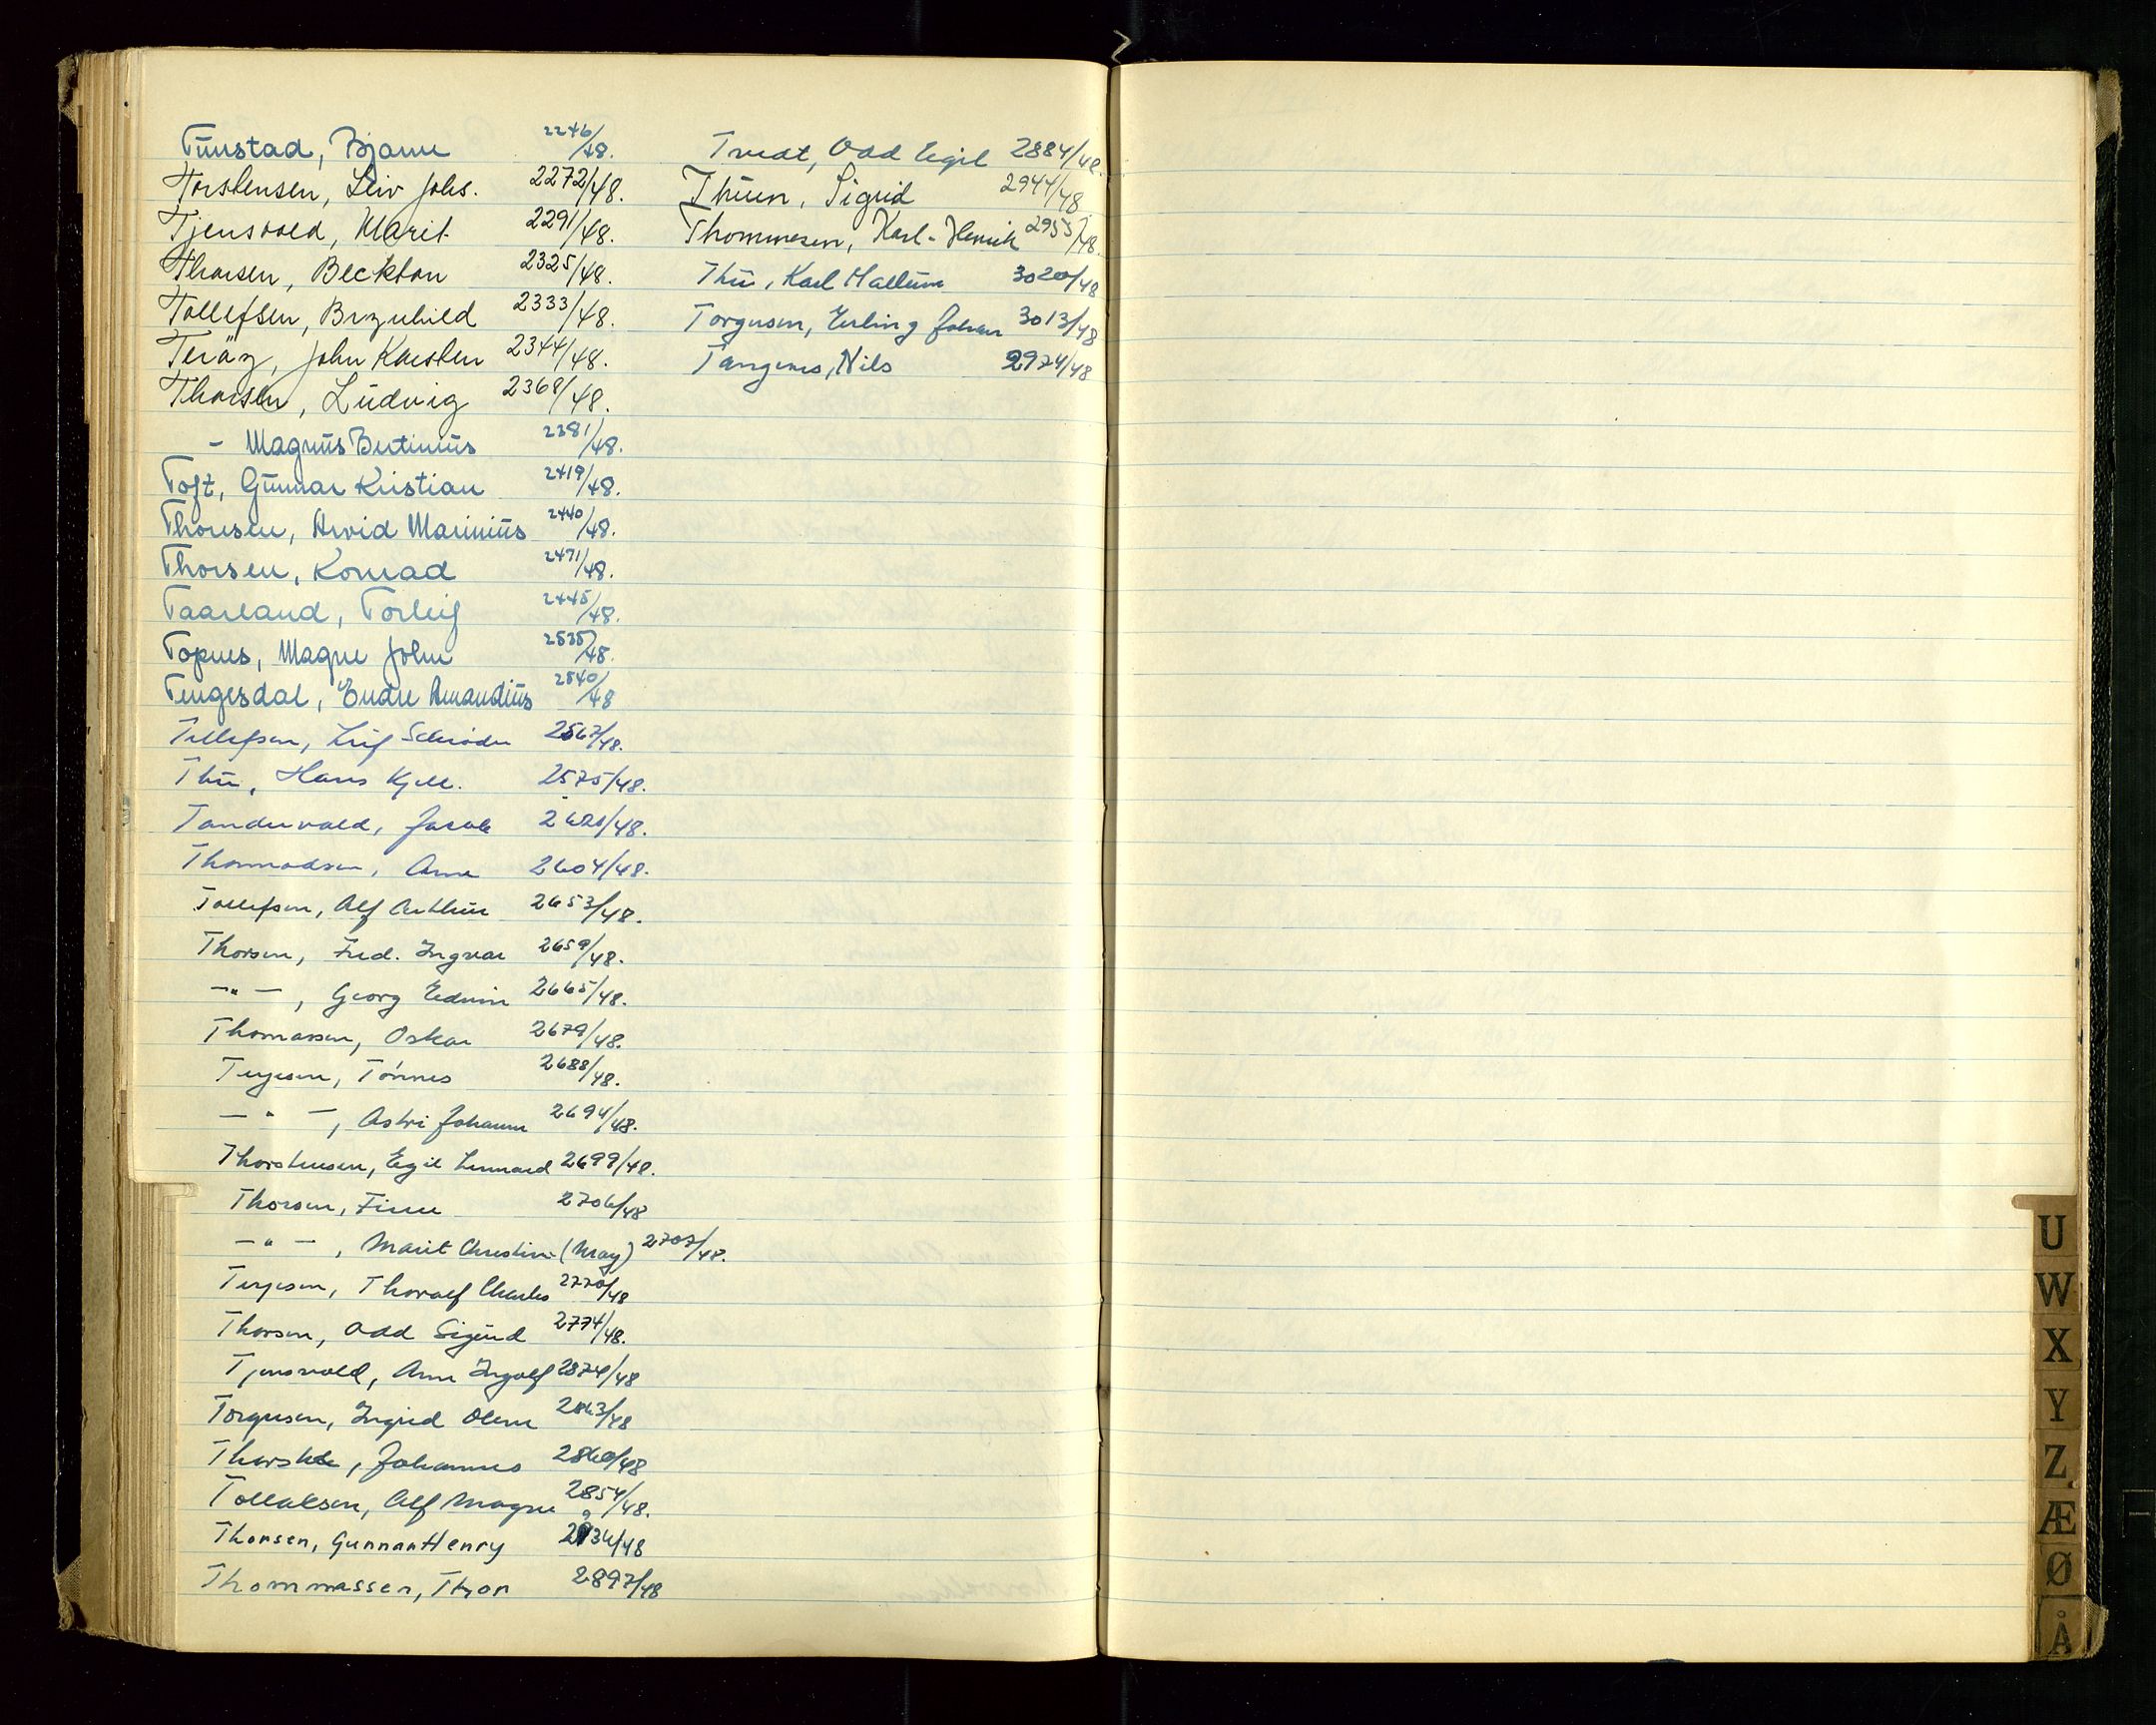 Tunstad, Bjarne 2246/48.
Torstensen, Leiv Johs. 2272/48.
Tjensvold, Marit 2291/48.
Thorsen, Beckton 2325/48.
Tollefsen, Brynhild 2333/48.
Teräz, John Karsten 2344/48.
Thorsen, Ludvig 2368/48.
- Magnus Bertinius 2381/48.
Toft, Gunnar Kristian 2419/48.
Thorsen, Arvid Marinius 2440/48.
Thorsen, Konrad 2471/48.
Taarland, Torleif 2445/48.
Topnes, Magne John 2535/48.
Tengesdal, Endre Amandius 2540/48
Tollefsen, Leif Schrøder 2567/48.
Thu, Hans Kjell. 2575/48.
Tandervold, Jacob 2621/48.
Thormodsen, Arne 2604/48.
Tollefsen, Alf Arthur 2653/48.
Thorsen, Fred. Ingvar 2659/48.
-"-, Georg Edvin 2665/48.
Thomassen, Oskar 2679/48.
Terjesen, Tønnes 2688/48.
-"-, Astri Johanne 2694/48.
Thorstensen, Egil Lennard 2699/48.
Thorsen, Finn 2706/48
-"-, Marit Christine (May) 2707/48.
Terjesen, Thoralf Charles 2770/48
Thorsen, Odd Sigurd 2774/48.
Tjensvold, Arne Ingolf 2874/48
Torgersen, Ingrid Olene 2863/48
Johannes 2860/48
Tollaksen, Alf Magne 2854/48.
Thorsen, Gunnar Henry 2934/48
Thommassen, Thor 2897/48
Tvedt, Odd Egil 2884/48.
Thuen, Sigrid 2944/48
Thommesen, Karl-Henrik 2955/48.
Thu, Karl Mallum 3020/48
Torgersen, Erling Johan 3013/48
Tangenes, Nils 2974/48
U
W
X
Y
Z
Æ
Ø
Å